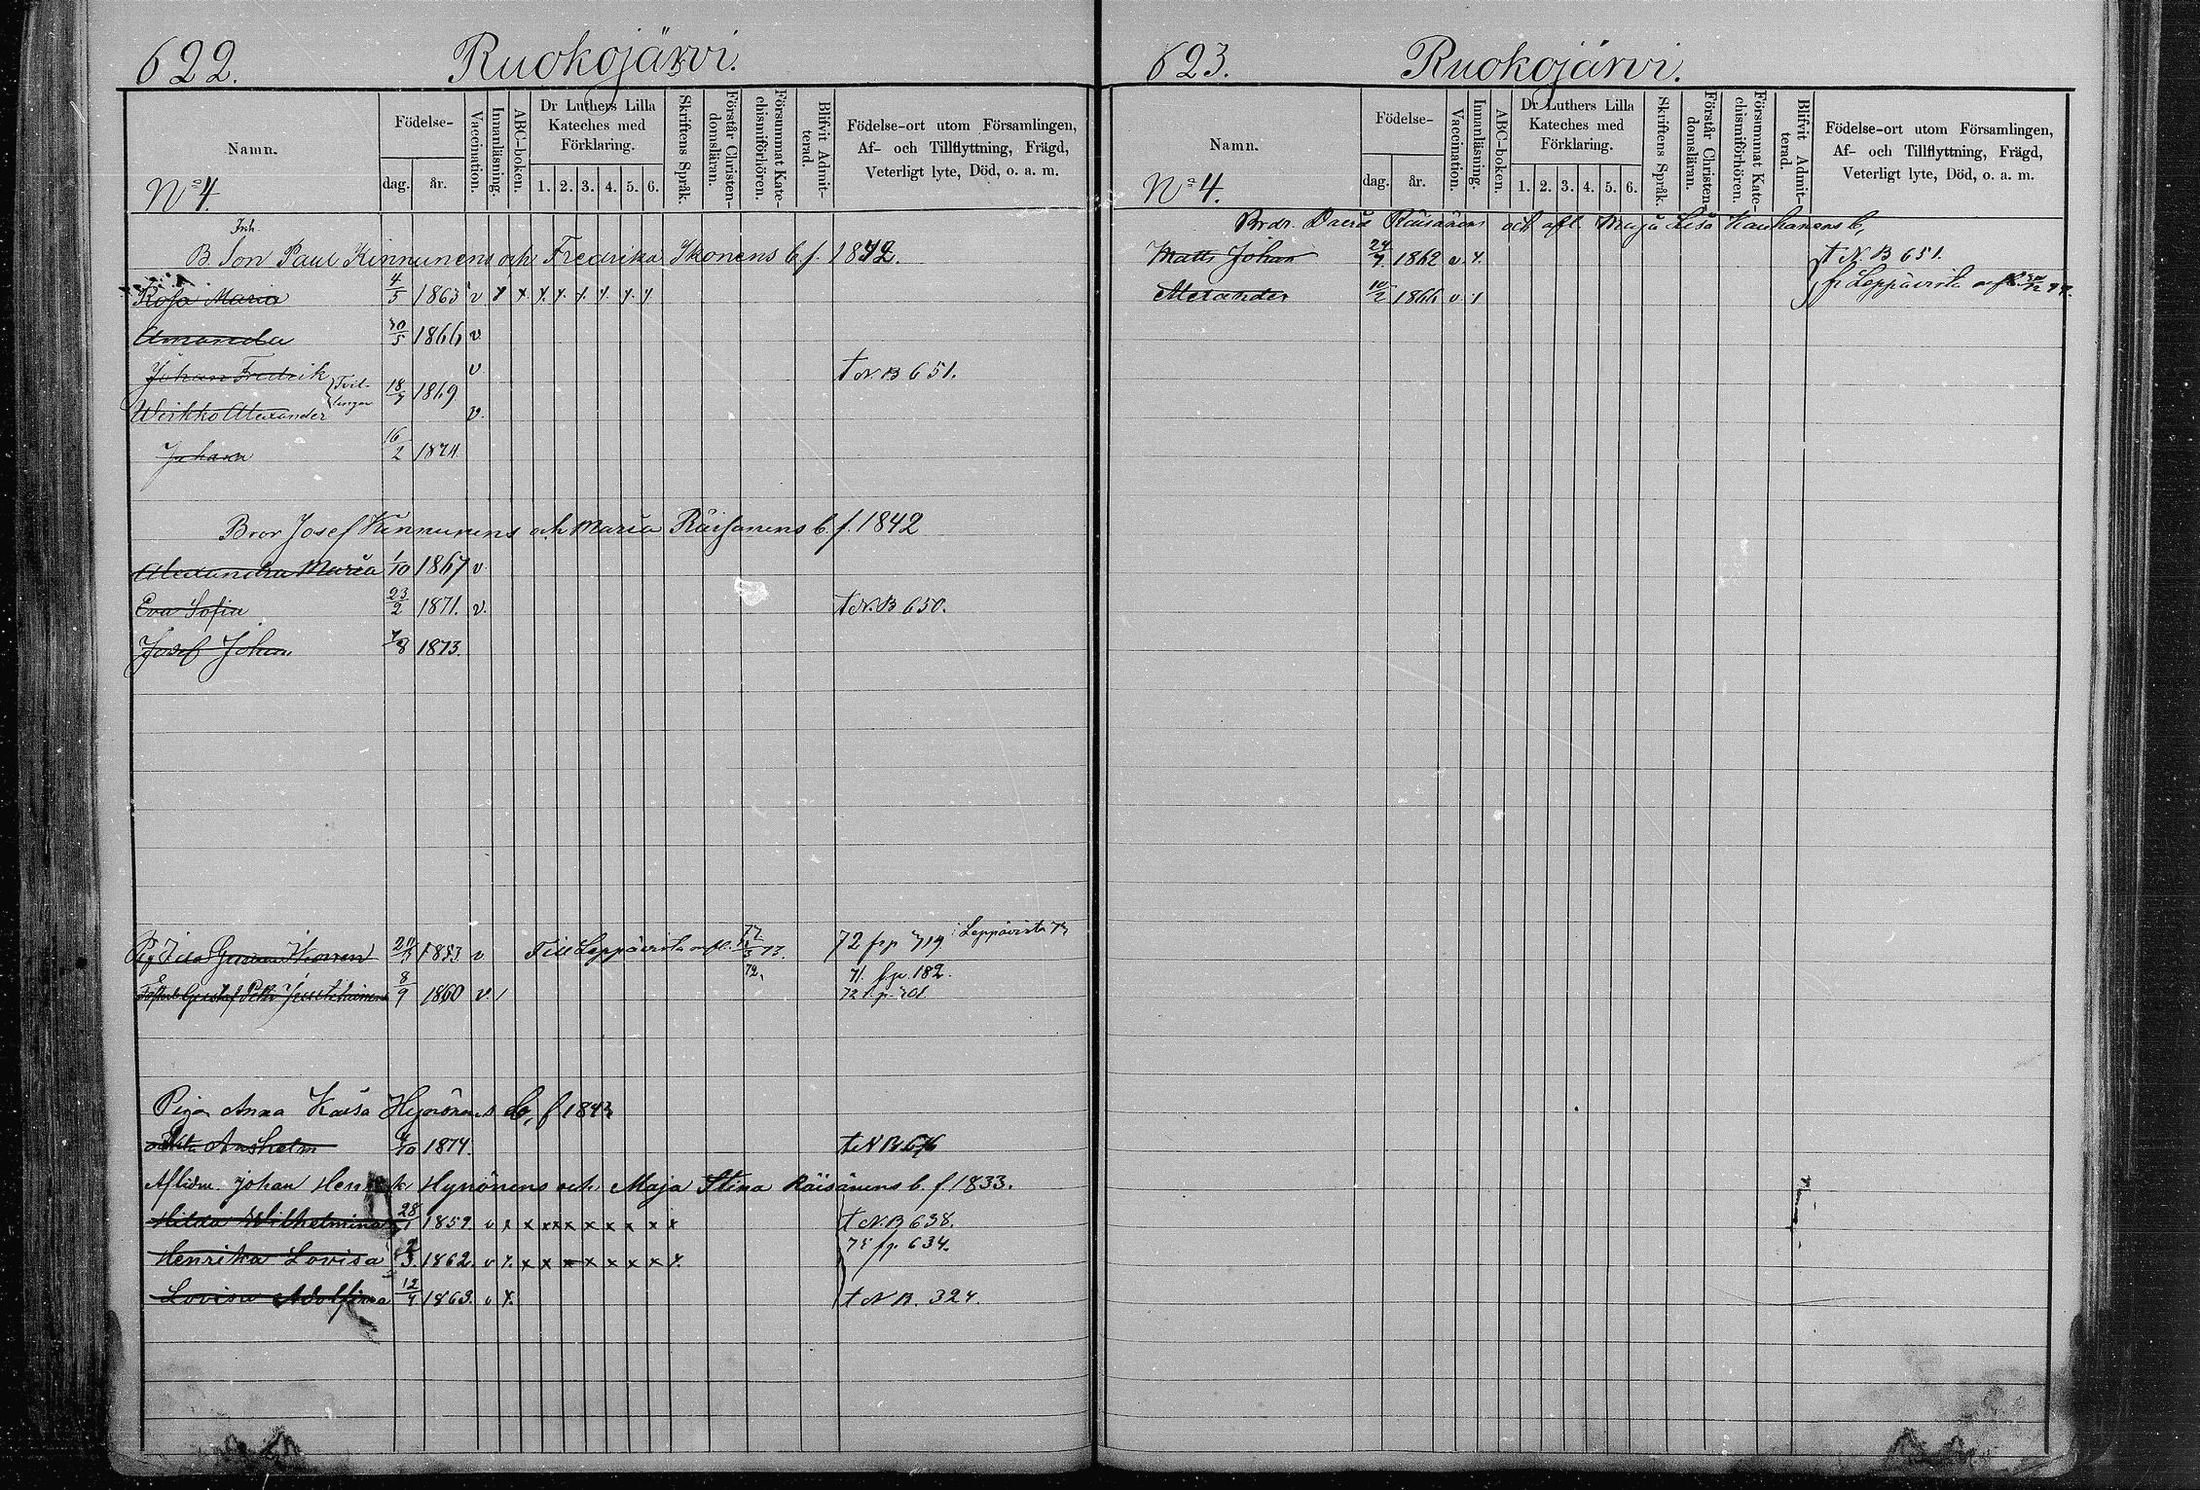 622. Ruokojärvi.
Namn.
Födelse-
dag. år.
Vaccination.
Innanläsning.
ABC-boken.
Dr Luthers Lilla
Kateches med
Förklaring.
1. 2. 3. 4. 5. 6.
Skriftens Språk.
Förstår Christen-
domsläran.
Försummat Kate-
chismiförhören.
Blifvit Admit-
terad.
Födelse-ort utom Församlingen,
Af- och Tillflyttning, Frägd,
Veterligt lyte, Död, o. a. m.
No 4.
Inh
B. Son Paul Kinnunens och Fredrika Ikonens b. f. 1842.
Rosa Maria 4/5 1863 v x x x x x x x x
Amanda 30/5 1866 v
Johan Fredrik v t N. B 651.
Tvil-
lingar
18/7 1869
Weikko Alexander v.
Johan 16/2 1874
Bror Josef Kinnunens och Maria Räisänens b. f. 1842
Alexandra Maria 1/10 1867 v
Eva Sofia 23/2 1871. v. t N. B 650.
Josef Johan 7/8 1873.
1853 v Till Leppävirta 73. 72 fr p 719 Leppävirta
71. fr p. 182.
Gustaf 8/9 1860 v /
Pigan Anna Kaisa Hynönens b, f 184
Anshelm 1874. t N B 676
Aflidne Johan Henrik Hynönens och Maja Stina Räisänens b. f 1833.
Hilda Wilhelmina 28/1 1859. v x x x x x x x x x x t N. B 638.
75 fr p. 634.
Henrika Lovisa 1862. v x. x x x x x x x x.
Lovisa Adolfina 12/4 1863. v x. t N B. 324.
623. Ruokojärvi.
Namn.
Födelse-
dag. år.
Vaccination.
Innanläsning.
ABC-boken.
Dr Luthers Lilla
Kateches med
Förklaring.
1. 2. 3. 4. 5. 6.
Skriftens Språk.
Förstår Christen-
domsläran.
Försummat Kate-
chismiförhören.
Blifvit Admit-
terad.
Födelse-ort utom Församlingen,
Af- och Tillflyttning, Frägd,
Veterligt lyte, Död, o. a. m.
No 4.
Räisänens och afl. Maja Lisa Kauhanens b,
Matts Johan 24/7 1862 v. x. t N. B 651.
fr Leppävirta
Alexander 10/2 1866 v x